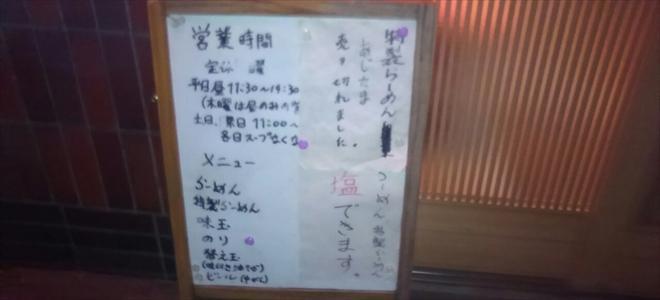 営業時間
平日昼11:30〜14:30
(木曜は昼のみの営
土日、祭日 11:00〜
各日スープなくな
メニュー
らーめん
特製らーめん
味玉
のり
替え玉
ビール
特製らーめん
あじたま
売り切れました。
らーめん 特製らーめん
塩できます。